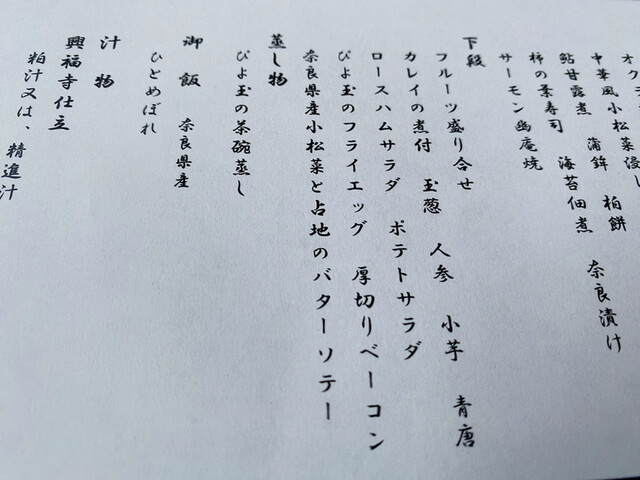 オク
中華風小松菜浸し
鮎甘露煮　蒲鉾　柏餅
柿の葉寿司　海苔佃煮　奈良漬け
サーモン幽庵焼
下段
フルーツ盛り合せ
カレイの煮付　玉葱　人参　小芋　青唐
ロースハムサラダ　ポテトサラダ
ぴよ玉のフライエッグ　厚切りベーコン
奈良県産小松菜と占地のバターソテー
蒸し物
ぴよ玉の茶碗蒸し
御飯　奈良県産
ひとめぼれ
汁物
興福寺仕立
粕汁又は、精進汁